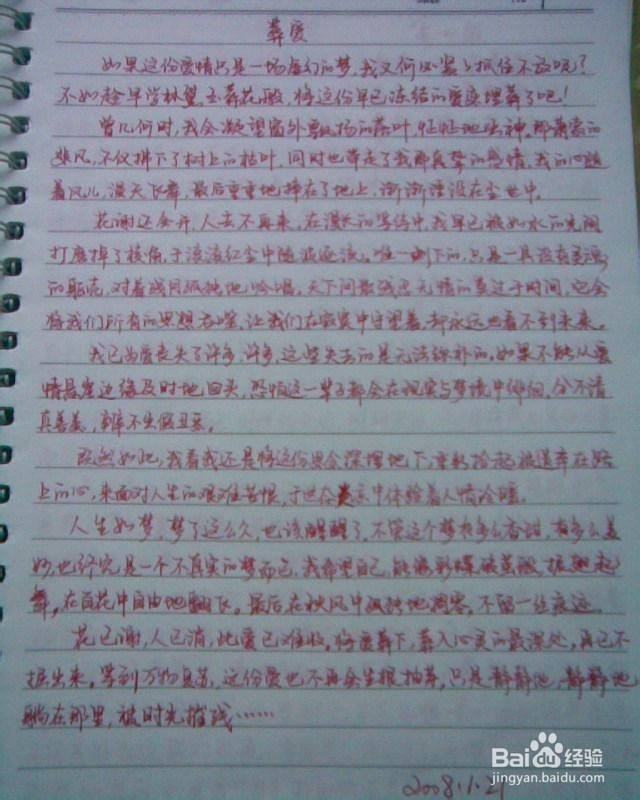 葬爱
如果这份爱情只是一场虚幻的梦,我又何必紧紧抓住不放呢?
不如趁早学林黛玉葬花般,将这份早已冻结的爱恋埋葬了吧!
曾几何时,我会凝望窗外飘扬的落叶,怔怔地出神。那萧索的
悲风,不仅拂下了树上的枯叶,同时也带走了我那真挚的感情,我的心随
着风儿,漫天飞舞,最后重重地摔在了地上,渐渐湮没在尘世中。
花谢还会开,人去不再来,在漫长的等待中,我早已被如水的光阴
打磨掉了棱角,于滚滚红尘中随波逐流。唯一剩下的,只是一具没有灵魂
的躯壳,对着残月孤独地吟唱。天下间最残忍无情的莫过于时间,它会
将我们所有的思想吞噬,让我们在寂寞中守望着,却永远也看不到未来。
我已为爱丧失了许多,许多,这些失去的是无法弥补的。如果不能从爱
情悬崖边缘及时地回头,恐怕这一辈子都会在现实与梦境中徘徊,分不清
真善美,辨不出假丑恶。
既然如此,我看我还是将这份思念深埋地下,重新拾起被遗弃在路
上的心,来面对人生的艰难苦恨,于世态炎凉中体验着人情冷暖。
人生如梦,梦了这么久,也该醒醒了,不管这个梦有多么香甜,有多么美
妙,也终究是一个不真实的梦而已。我希望自己,能像彩蝶破茧般,振翅起
舞,在百花中自由地翻飞。最后在秋风中孤独地凋零。不留一丝痕迹。
花已谢,人已消,此爱已难收。将爱葬下,葬入心灵的最深处,再已不
掘出来。等到万物复苏,这份爱也不再会生根抽芽,只是静静地,静静地
躺在那里,被时光摧残……
2008.1.21
Baidu经验
jingyan.baidu.com